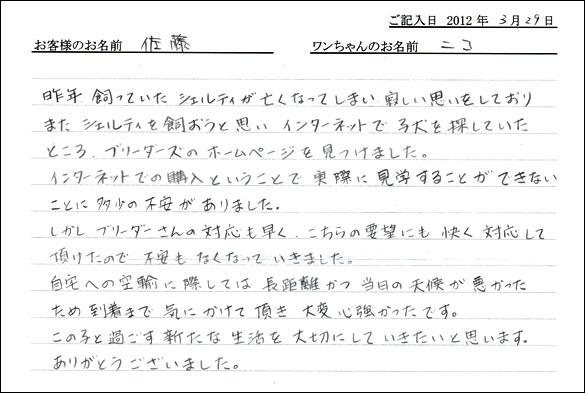 ご記入日 2012 年 3月29日
お客様のお名前 佐藤 ワンちゃんのお名前 ニコ
昨年 飼っていた シェルティが亡くなってしまい 寂しい思いをしており
また シェルティを飼おうと思い インターネットで 子犬を探していた
ところ、ブリーダーズの ホームページを見つけました。
インターネットでの購入ということで 実際に見学することができない
ことに 多少の不安がありました。
しかし ブリーダーさんの対応も早く、こちらの要望にも 快く対応して
頂けたので 不安もなくなっていきました。
自宅への空輸に際しては 長距離かつ 当日の天候が悪かった
ため 到着まで 気にかけて頂き 大変心強かったです。
この子と過ごす新たな生活を大切にしていきたいと思います。
ありがとうございました。